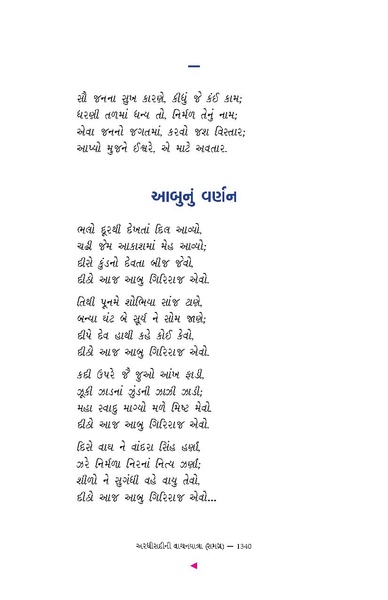 સૌ જનના સુખ કારણે, કીધું જે કંઈ કામ;
ધરણી તળમાં ધન્ય તો, નિર્મળ તેનું નામ;
એવા જનનો જગતમાં, કરવો જશ વિસ્તાર;
આપ્યો મુજને ઈશ્વરે, એ માટે અવતાર.
આબુનું વર્ણન
ભલો દૂરથી દેખતાં દિલ આવ્યો,
ચઢી જેમ આકાશમાં મેહ આવ્યો;
દીસે કુંડનો દેવતા બીજ જેવો,
દીઠો આજ આબુ ગિરિરાજ એવો.
તિથી પૂનમે શોભિયા સાંજ ટાણે,
બન્યા ઘંટ બે સૂર્ય ને સોમ જાણે;
દીપે દેવ હાથી કહે કોઈ કેવો,
દીઠો આજ આબુ ગિરિરાજ એવો.
કદી ઉપરે જૈ જુઓ આંખ ફાડી,
ઝૂકી ઝાડનાં ઝુંડની ઝાઝી ઝાડી;
મહા સ્વાદુ માગ્યો મળે મિષ્ટ મેવો.
દીઠો આજ આબુ ગિરિરાજ એવો.
દિસે વાઘ ને વાંદરા સિંહ હર્ણાં,
ઝરે નિર્મળા નિરનાં નિત્ય ઝર્ણાં;
શીળો ને સુગંધી વહે વાયુ તેવો,
દીઠો આજ આબુ ગિરિરાજ એવો...
અરધીસદીની વાચનયાત્રા (સમગ્ર) — 1340